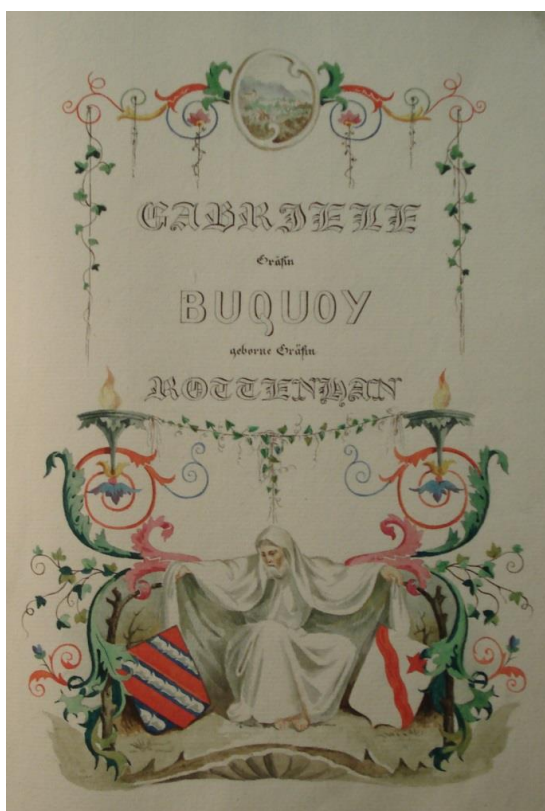 GABRIELE
Gräfin
BUQUOY
geborne Gräfin
ROTTENHAN